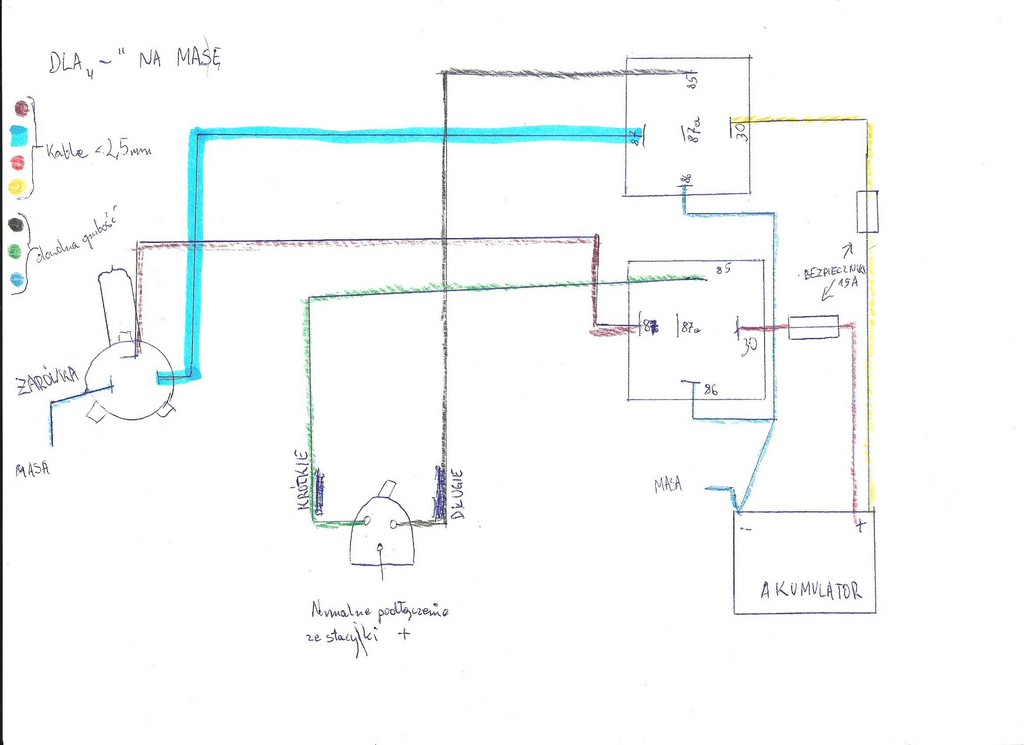 DLA „-" NA MASĘ
Kable <2,5mm
dowolna grubość
ŻARÓWKA
MASA
KRÓTKIE
DŁUGIE
Normalne podłączenie
ze stacyjki +
85
87
87a
30
86
BEZPIECZNIKI
15A
85
87
87a
30
86
MASA
- +
AKUMULATOR